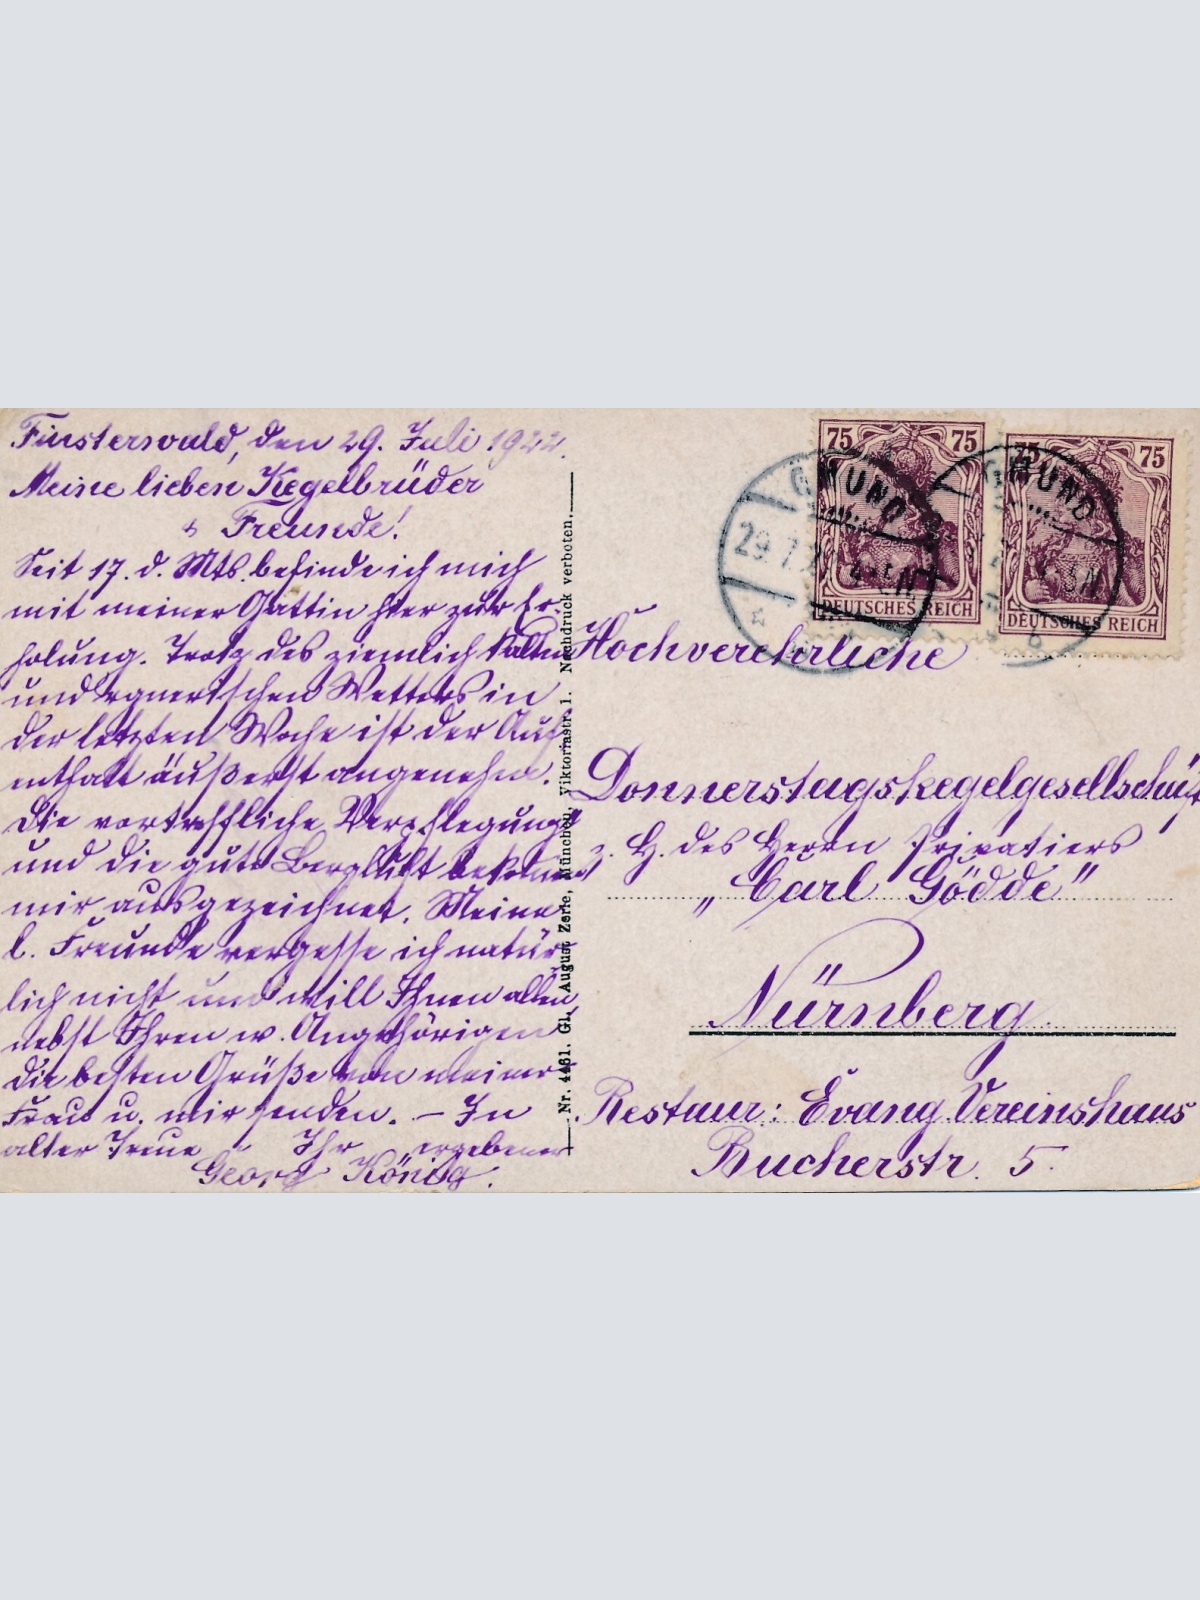 Finsterwald, den 29. Juli 1922.
Meine lieben Kegelbrüder
& Freunde!
Seit 17. d. Mts. befinde ich mich
mit meiner Gattin hier zur Er-
holung. Trotz des ziemlich kalten
und regnerischen Wetters in
der letzten Woche ist der Auf-
enthalt äußerst angenehm.
Die vortreffliche Verpflegung
und die gute Bergluft bekommt
mir ausgezeichnet. Meine
l. Freunde vergesse ich natür-
lich nicht und will Ihnen allen
nebst Ihren w. Angehörigen
die besten Grüße von meiner
Frau u. mir senden. – In
alter Treue Ihr ergebener
Georg König.
Nr. 4461. Gl. August Zerle, München, Viktoriastr. 1. Nachdruck verboten.
75 75
DEUTSCHES REICH
75 75
DEUTSCHES REICH
GMUND
29.7.22
GMUND
Hochverehrliche
Donnerstagskegelgesellschaft
z. H. des Herrn Privatiers
„Carl Gödde"
Nürnberg
Restaur: Evang. Vereinshaus
Bucherstr. 5.